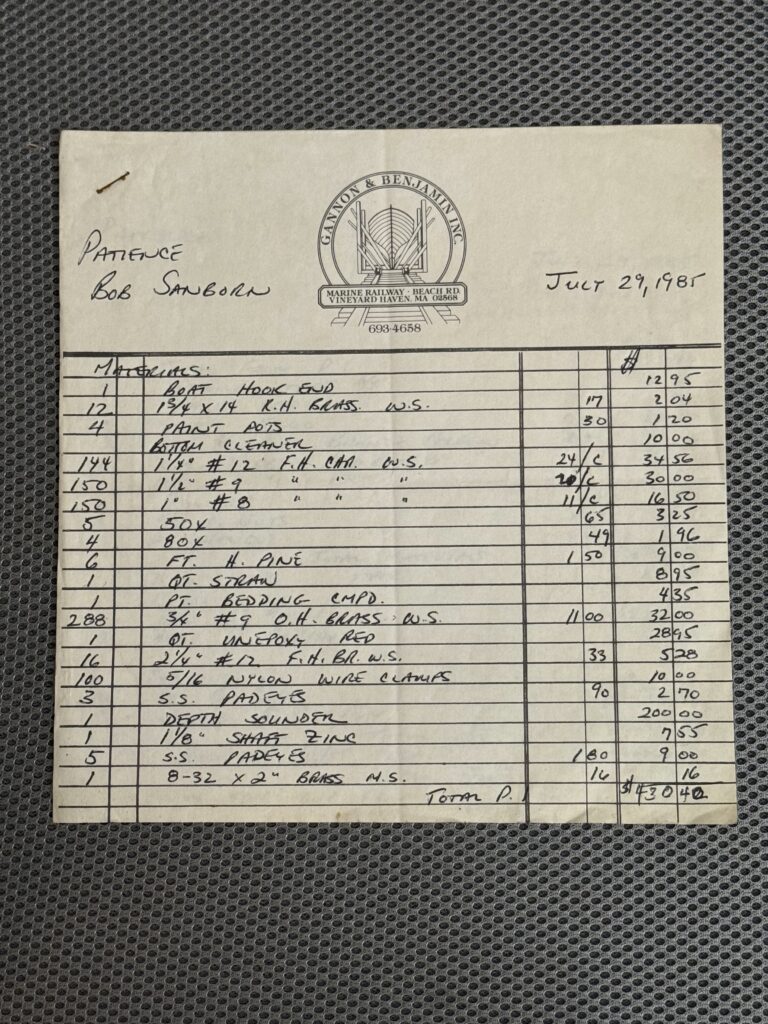 GANNON & BENJAMIN INC.
MARINE RAILWAY · BEACH RD.
VINEYARD HAVEN, MA 02568
693-4658
PATIENCE
BOB SANBORN
JULY 29, 1985
MATERIALS: $
1 BOAT HOOK END 12 95
12 1 3/4 X 14 R.H. BRASS W.S. 17 2 04
4 PAINT POTS 30 1 20
BOTTOM CLEANER 10 00
144 1 1/4" #12 F.H. CAR. W.S. 24/C 34 56
150 1 1/2" #9 " " " 20/C 30 00
150 1" #8 " " " 11/C 16 50
5 50X 65 3 25
4 80X 49 1 96
6 FT. H. PINE 1 50 9 00
1 QT. STRAW 8 95
1 PT. BEDDING CMPD. 4 35
288 3/4" #9 O.H. BRASS W.S. 11 00 32 00
1 QT. UNEPOXY RED 28 95
16 2 1/4" #12 F.H. BR. W.S. 33 5 28
100 5/16 NYLON WIRE CLAMPS 10 00
3 S.S. PADEYES 90 2 70
1 DEPTH SOUNDER 200 00
1 1 1/8" SHAFT ZINC 7 55
5 S.S. PADEYES 1 80 9 00
1 8-32 X 2" BRASS M.S. 16 16
TOTAL P. 1 $430 40